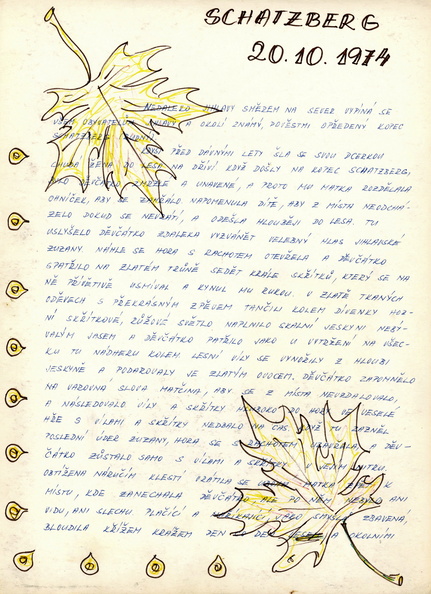 SCHATZBERG
20.10.1974
NEDALEKO JIHLAVY SMĚREM NA SEVER VYPÍNÁ SE
VŠEM OBYVATELŮM JIHLAVY A OKOLÍ ZNÁMÝ, POVĚSTMI OPŘEDENÝ KOPEC
SCHATZBERG
PŘED DÁVNÝMI LETY ŠLA SE SVOU DCERKOU
CHUDÁ ŽENA DO LESA NA DŘÍVÍ. KDYŽ DOŠLY NA KOPEC SCHATZBERG,
BYLO DĚVČÁTKO ZMRZLÉ A UNAVENÉ, A PROTO MU MATKA ROZDĚLALA
OHNÍČEK, ABY SE ZAHŘÁLO. NAPOMENULA DÍTĚ, ABY Z MÍSTA NEODCHÁ-
ZELO DOKUD SE NEVRÁTÍ, A ODEŠLA HLOUBĚJI DO LESA. TU
USLYŠELO DĚVČÁTKO ZDALEKA VYZVÁNĚT VELEBNÝ HLAS JIHLAVSKÉ
ZUZANY. NÁHLE SE HORA S RACHOTEM OTEVŘELA A DĚVČÁTKO
SPATŘILO NA ZLATÉM TRŮNĚ SEDĚT KRÁLE SKŘÍTKŮ, KTERÝ SE NA
NĚ PŘÍVĚTIVĚ USMÍVAL A KYNUL MU RUKOU. V ZLATĚ TKANÝCH
ODĚVECH S PŘEKRÁSNÝM ZPĚVEM TANČILI KOLEM DÍVENKY HOR-
NÍ SKŘÍTKOVÉ, RŮŽOVÉ SVĚTLO NAPLNILO SKALNÍ JESKYNI NEBÝ-
VALÝM JASEM A DĚVČÁTKO PATŘILO JAKO U VYTRŽENÍ NA VŠEC-
KU TU NÁDHERU KOLEM. LESNÍ VÍLY SE VYNOŘILY Z HLOUBI
JESKYNĚ A PODAROVALY JE ZLATÝM OVOCEM. DĚVČÁTKO ZAPOMNĚLO
NA VAROVNÁ SLOVA MATČINA, ABY SE Z MÍSTA NEVZDALOVALO,
A NÁSLEDOVALO VÍLY A SKŘÍTKY HLUBOKO DO HORY. VE VESELÉ
HŘE S VÍLAMI A SKŘÍTKY NEDBALO NA ČAS. KDYŽ TU ZAZNĚL
POSLEDNÍ ÚDER ZUZANY, HORA SE S RACHOTEM UZAVŘELA, A DĚV-
ČÁTKO ZŮSTALO SAMO S VÍLAMI A SKŘÍTKY V JEJÍM NITRU.
OBTÍŽENA NÁRUČÍM KLESTÍ VRÁTILA SE MATKA ZPĚT K
MÍSTU, KDE ZANECHALA DĚVČÁTKO, ALE PO NĚM NEBYLO ANI
VIDU, ANI SLECHU. PLAČÍCÍ A NAŘÍKAJÍCÍ, SMYSLŮ ZBAVENA,
BLOUDILA KŘÍŽEM KRÁŽEM DEN CO DEN OKOLNÍMI